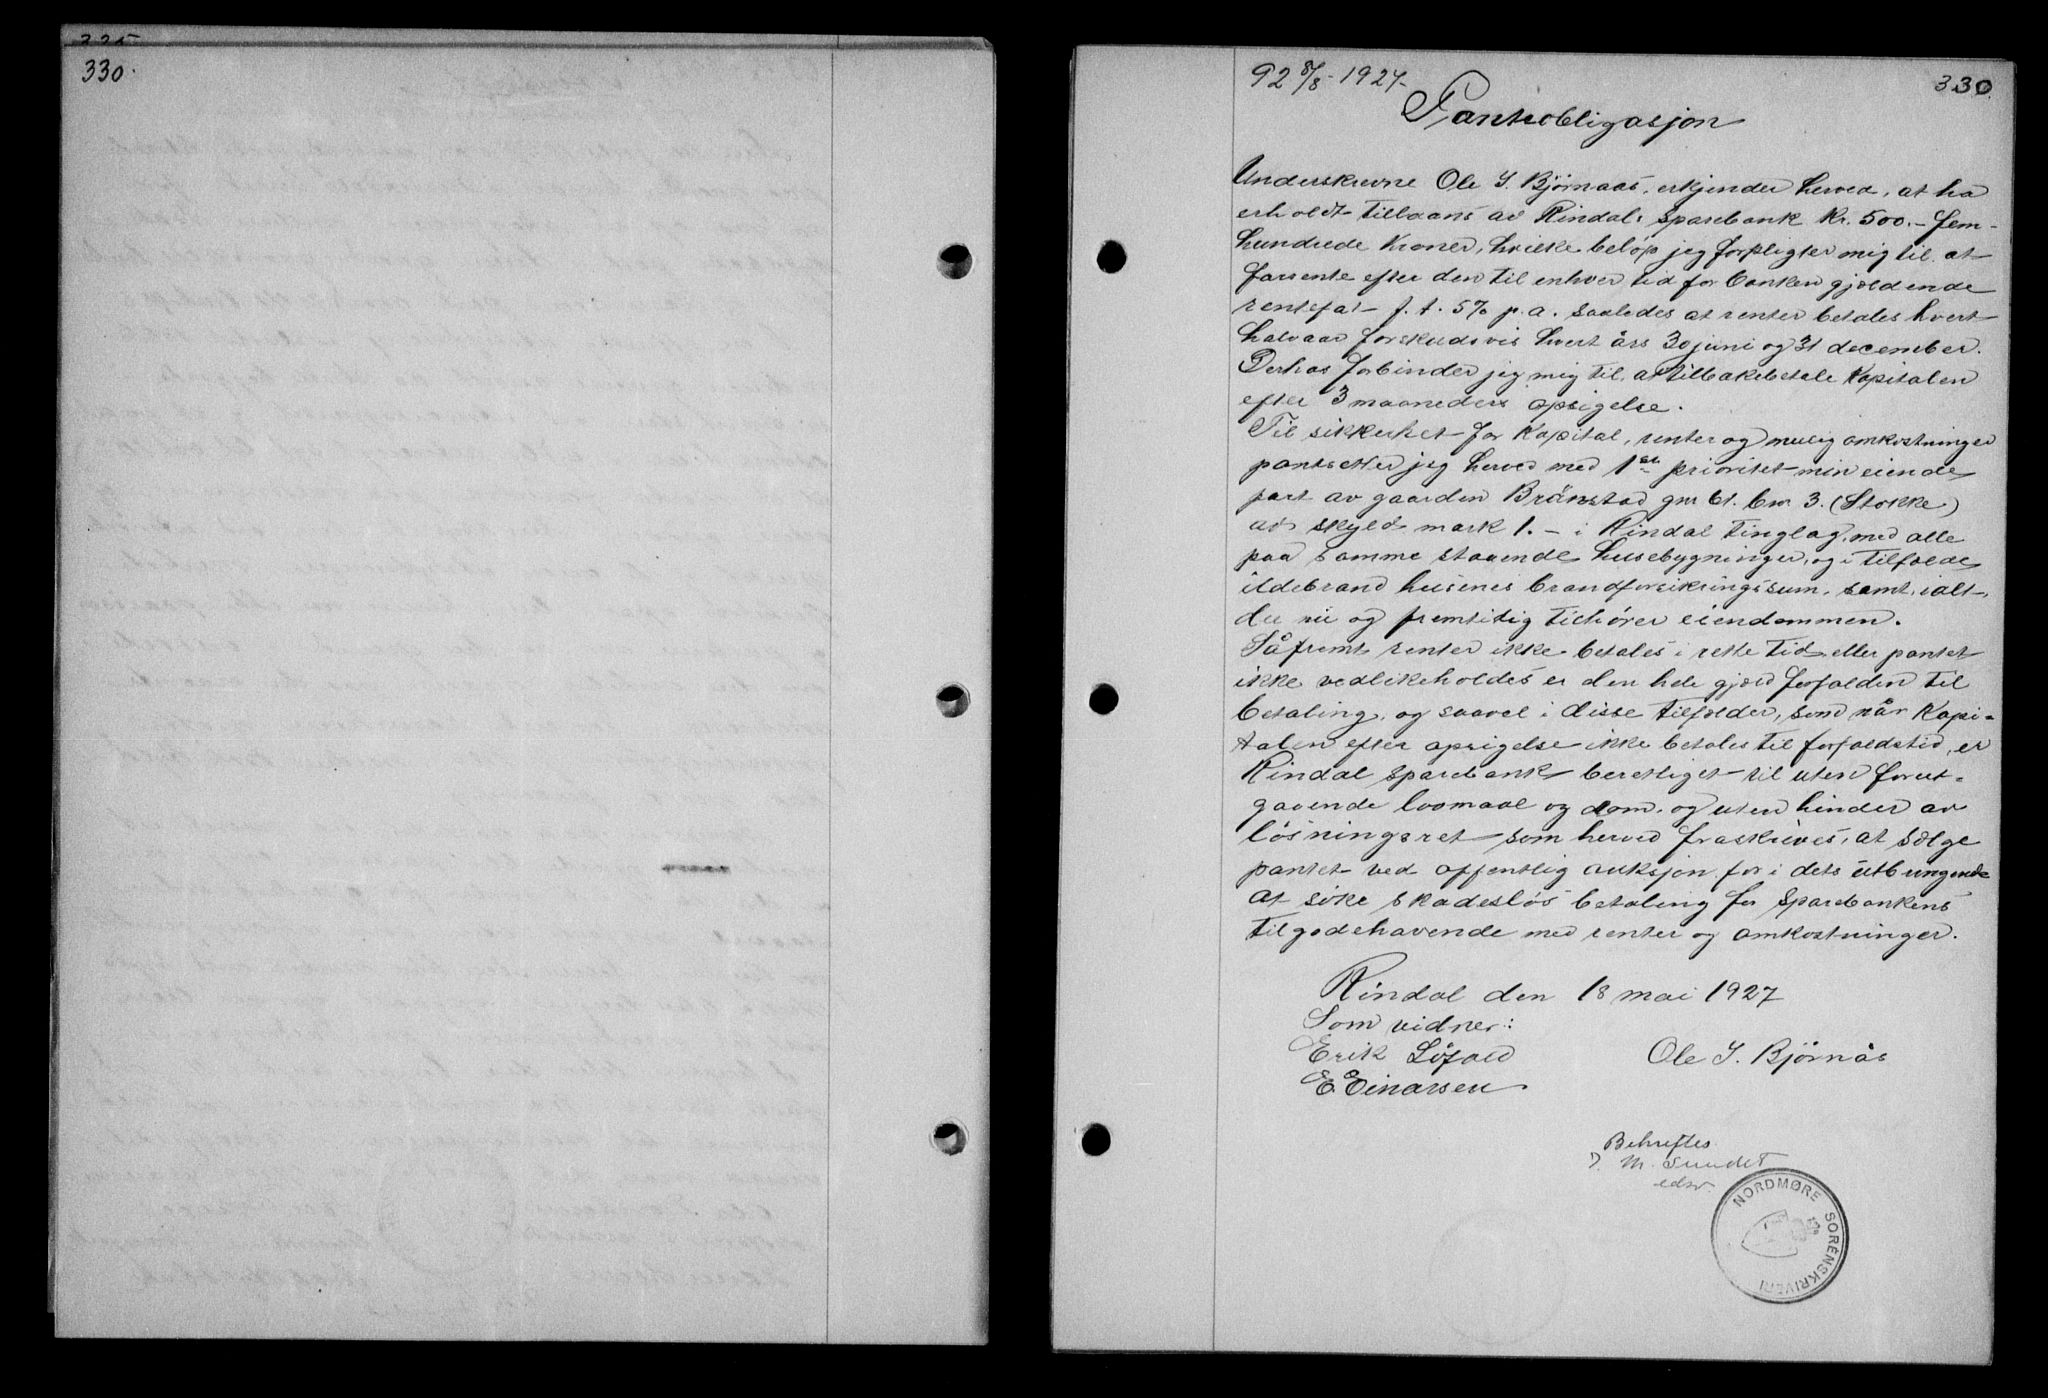 325
330.
92 8/8-1927-
330.
Pantobligasjon
Underskrevne Ole I. Bjørnaas, erkjender herved, at ha
erholdt tillaans av Rindals Sparebank Kr. 500.- fem-
hundrede Kroner, hvilke beløp jeg forpligter mig til at
forrente efter den til enhver tid for banken gjældende
rentefot f. t. 5% p.a. saaledes at renter betales hvert
halvaar forskudsvis hvert års 30 juni og 31 december.
Derhos forbinder jeg mig til at tilbakebetale Kapitalen
efter 3 maaneders opsigelse.
Til sikkerhet for Kapital, renter og mulig omkostninger
pantsetter jeg herved med 1ste prioritet min eiende
part av gaarden Brånstad gnr 61. bnr 3. (Stokke)
av skyld mark 1.- i Rindal Tinglag, med alle
paa samme staaende husebygninger, og i tilfælde
ildebrand husenes brandforsikringssum, samt, i alt,
du nu og fremtidig tilhører eiendommen.
Såfremt renter ikke betales i rette tid eller pantet
ikke vedlikeholdes er den hele gjæld forfalden til
betaling, og saavel i disse tilfælder, som når Kapi-
talen efter opsigelse ikke betales til forfaldstid, er
Rindal Sparebank berettiget til uten forut-
gaaende lovmaal og dom, og uten hinder av
løsningsret som herved fraskrives, at sælge
pantet ved offentlig auksjon for i dets utbungende
at søke skadesløs betaling for Sparebankens
tilgodehavende med renter og omkostninger.
Rindal den 18 mai 1927
Som vidner:
Erik Løfald
Ole I. Bjørnås
E. Einarsen
Bekreftes
M. Sundet
edsv.
NORDMØRE SORENSKRIVERI